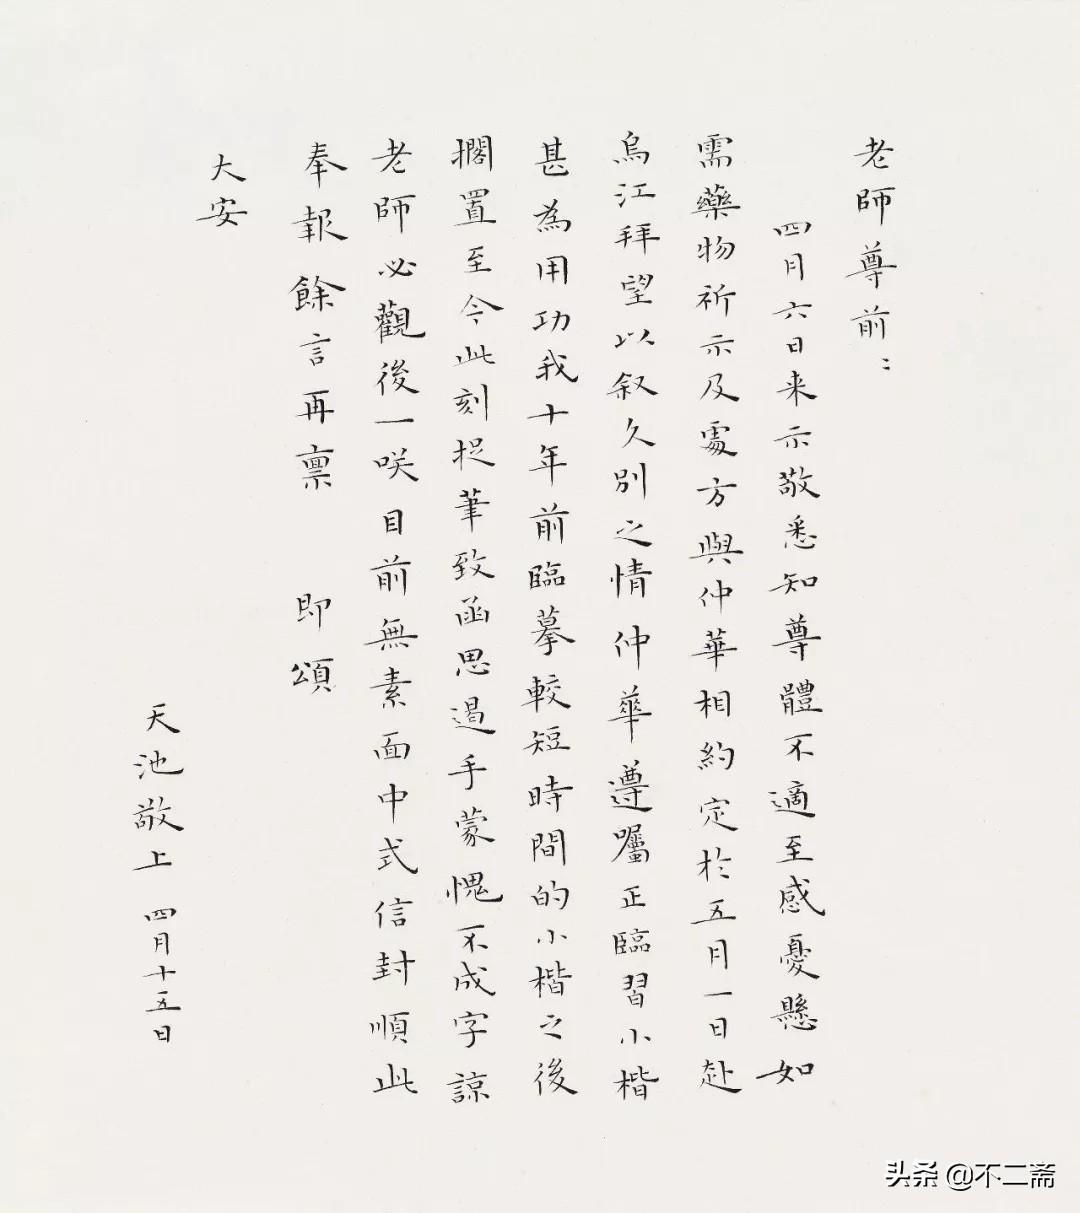 老師尊前：
四月六日来示敬悉知尊體不適至感憂懸如
需藥物祈示及處方與仲華相約定於五月一日赴
烏江拜望以叙久別之情仲華遵囑正臨習小楷
甚為用功我十年前臨摹較短時間的小楷之後
擱置至今此刻捉筆致函思遏手蒙愧不成字諒
老師必觀後一咲目前無素面中式信封順此
奉報餘言再禀 即頌
大安
天池敬上 四月十五日
头条 @不二斋